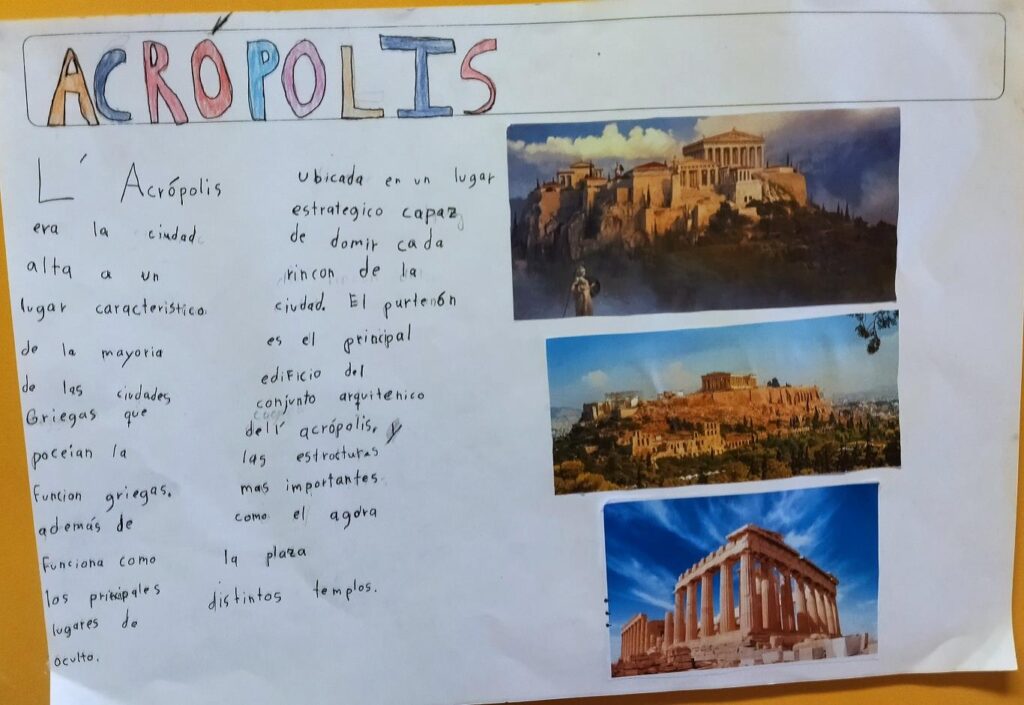 ACRÓPOLIS
L' Acrópolis
era la ciudad
alta a un
lugar caracteristico
de la mayoria
de las ciudades
Griegas que
poceian la
Funcion griegas.
además de
Funciona como
los principales
lugares de
oculto.
Ubicada en un lugar
estrategico capaz
de domir cada
rincon de la
ciudad. El partenón
es el principal
ediFicio del
conjunto arquitenico
dell' acrópolis, y
las estrocturas
mas importantes
como el agora
la plaza
distintos templos.